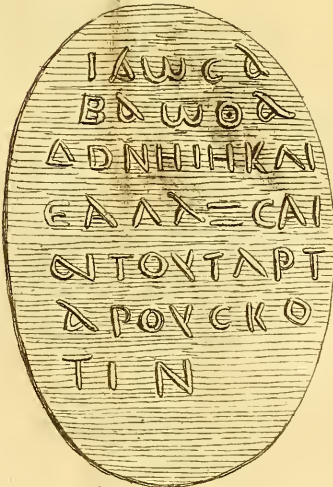 ΙΑωCΑ
ΒΑωΘΑ
ΔDΝΗΙΗΚΑΙ
ЄΑΛΑΞCΑΙ
ΑΙΤΟΥΤΑΡΤ
ΑΡΟΥCΚΟ
ΤΙΝ